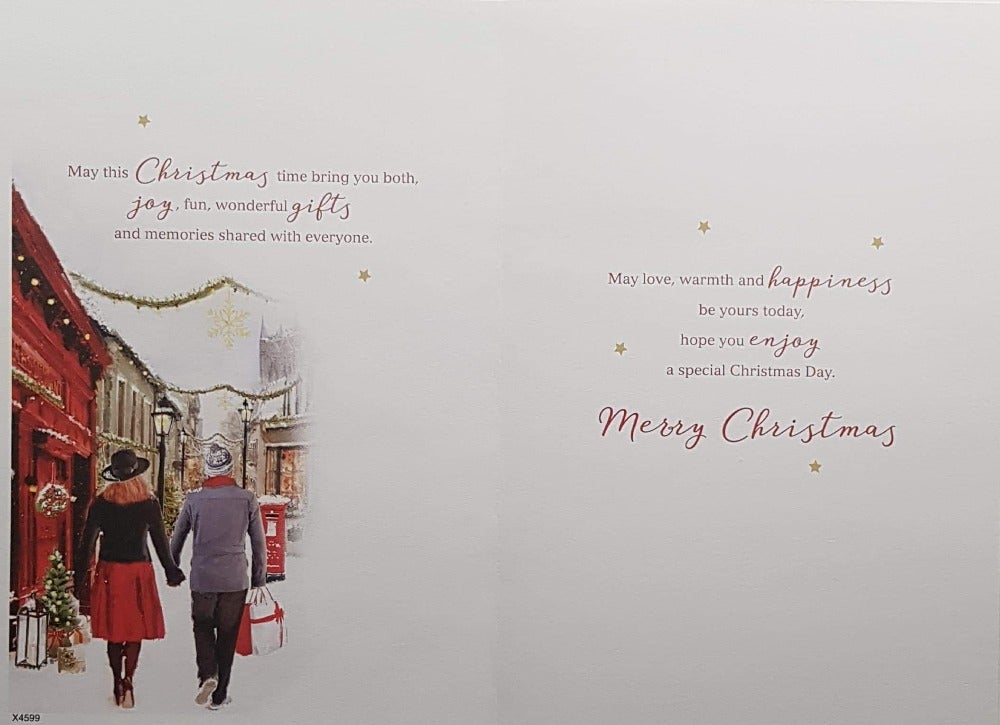 May this Christmas time bring you both,
joy, fun, wonderful gifts
and memories shared with everyone.
May love, warmth and happiness
be yours today,
hope you enjoy
a special Christmas Day.
Merry Christmas
X4599